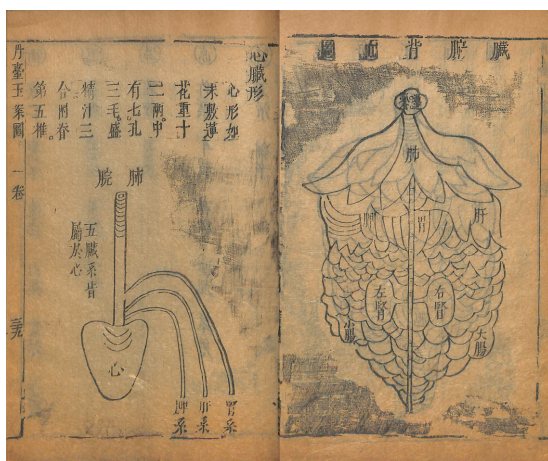 臟腑背面圖
肺
肝
胃
脾
右腎
左腎
大腸
小腸
心臟形
心形如
未敷蓮
花重十
二兩中
有七孔
三毛盛
精汁三
合附脊
第五椎
肺脘
五臟系皆
屬於心
心
胃系
肝系
脾系
丹臺玉案圖
一卷